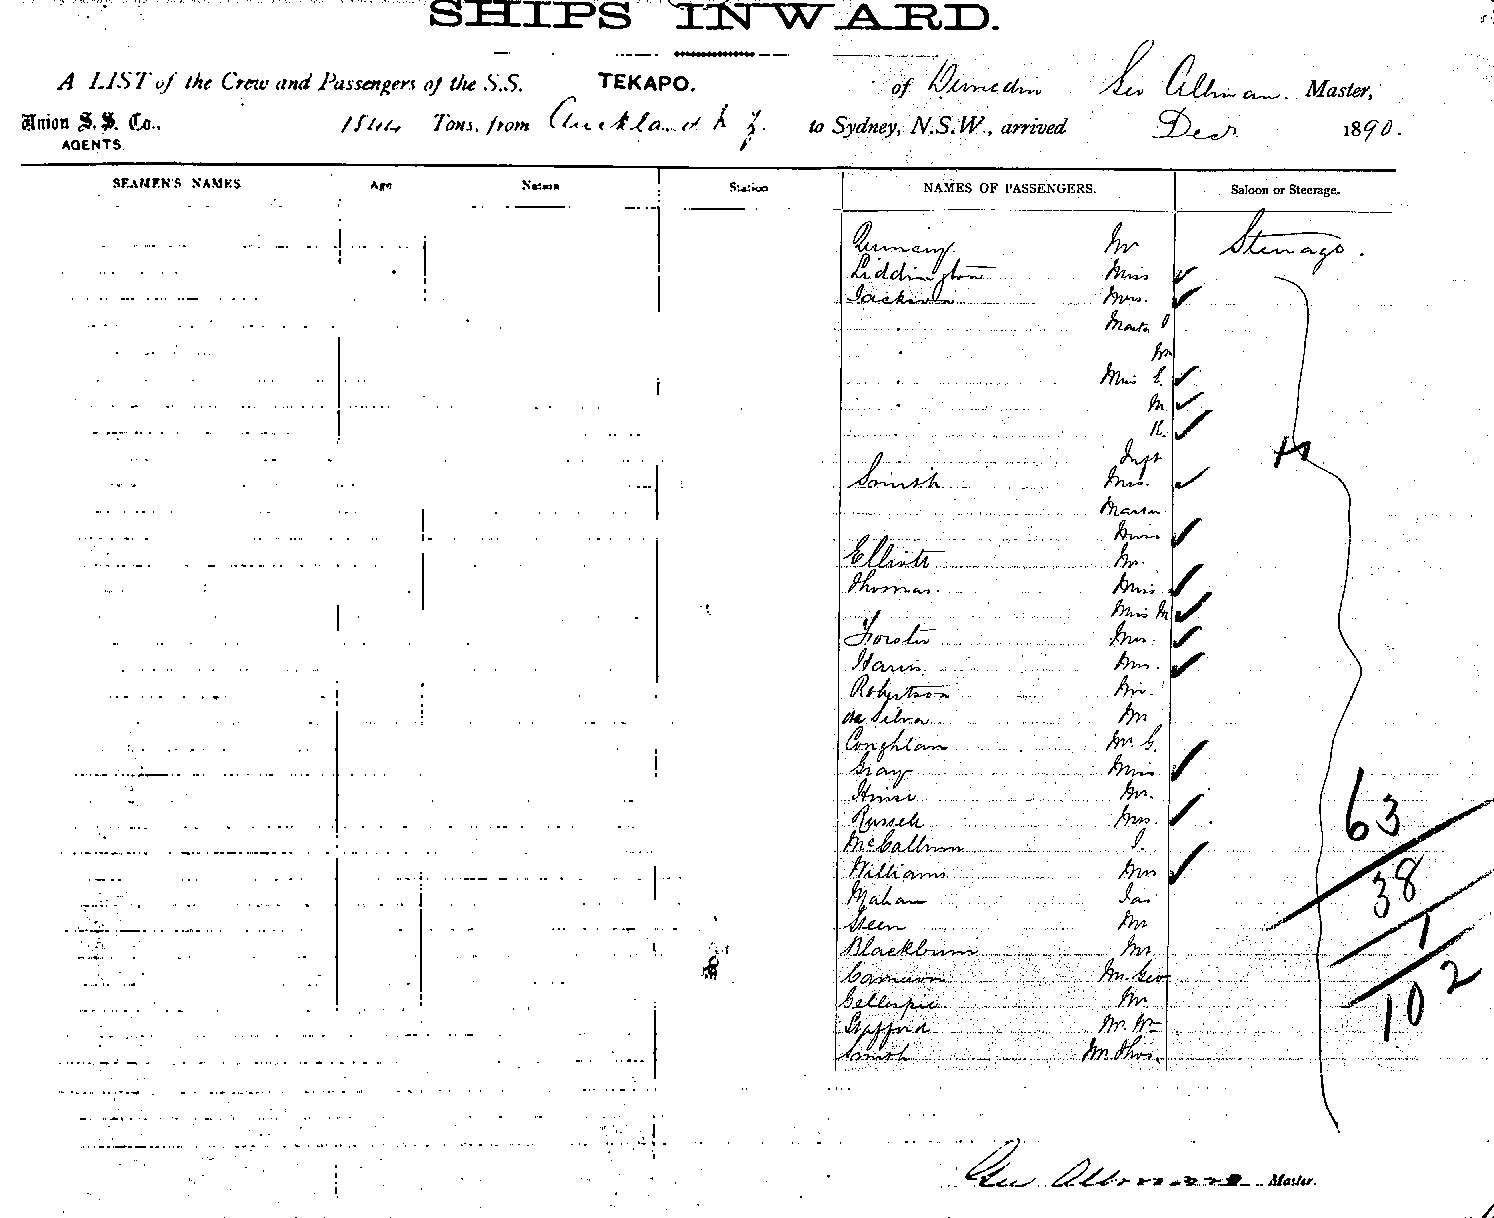 SHIPS INWARD.
A LIST of the Crew and Passengers of the S.S. TEKAPO. of Dunedin Geo Allman. Master,
Union S. S. Co., Tons, from Auckland N Z. to Sydney, N.S.W., arrived Decr 1890.
AGENTS
SEAMEN'S NAMES Age Nation Station NAMES OF PASSENGERS. Saloon or Steerage.
Mr Steerage.
Liddington Miss
Jackson Mrs.
" Master
" Wm
" Miss E.
" M.
" R.
Inft
Smith Mrs.
Master
Miss
Elliott Mr.
Thomas. Miss
Miss M
Forster Mrs.
Harris Mrs.
Robertson Mr.
da Silva Mr
Coughlan Mr. G.
Gray Miss
Mr.
Russell Mrs.
63
McCallum J.
Williams Mrs
38
Mahan Jas
Steen Mr
1
Blackburn Mr
Cameron Mr. Geo
102
Gillespie Mr
Stafford Mr. Wm
Smith Mr Thos.
Geo Allman Master.